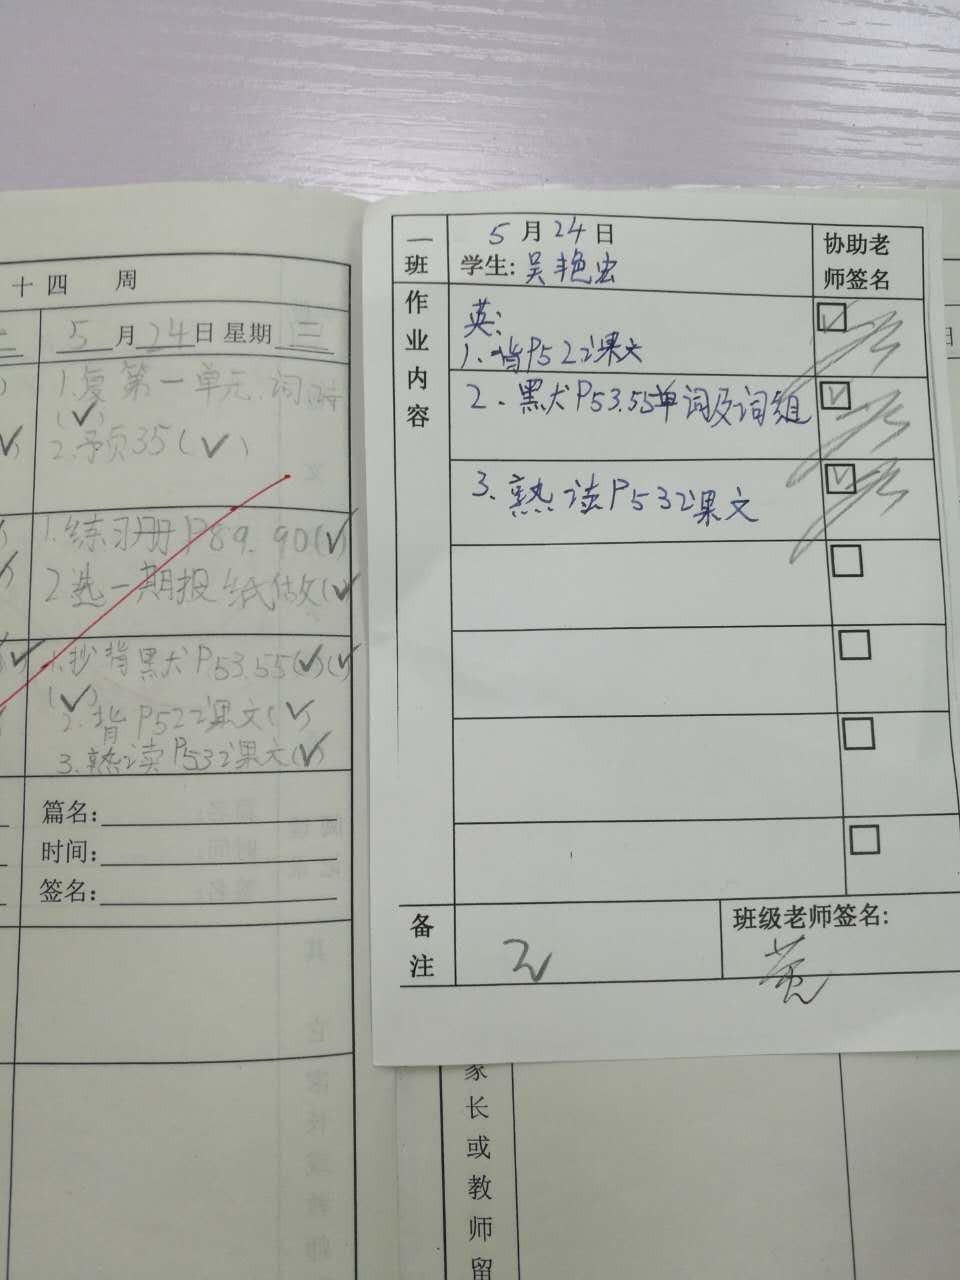 十四 周
5月24日 星期三
1.复第一单元.词
(✓)
2.予页35(✓)
1.练习册P89.90(✓)
2.选一期报纸做(✓)
1.抄背黑犬P53.55(✓)(✓)
(✓)
2.背P52课文(✓)
3.熟读P53课文(✓)
篇名:
时间:
签名:
一班
5月24日
学生:吴艳宏
协助老师签名
作业内容
英:
1.背P52课文
2.黑犬P53.55单词及词组
3.熟读P53课文
备注
班级老师签名:
黄
家长或教师留